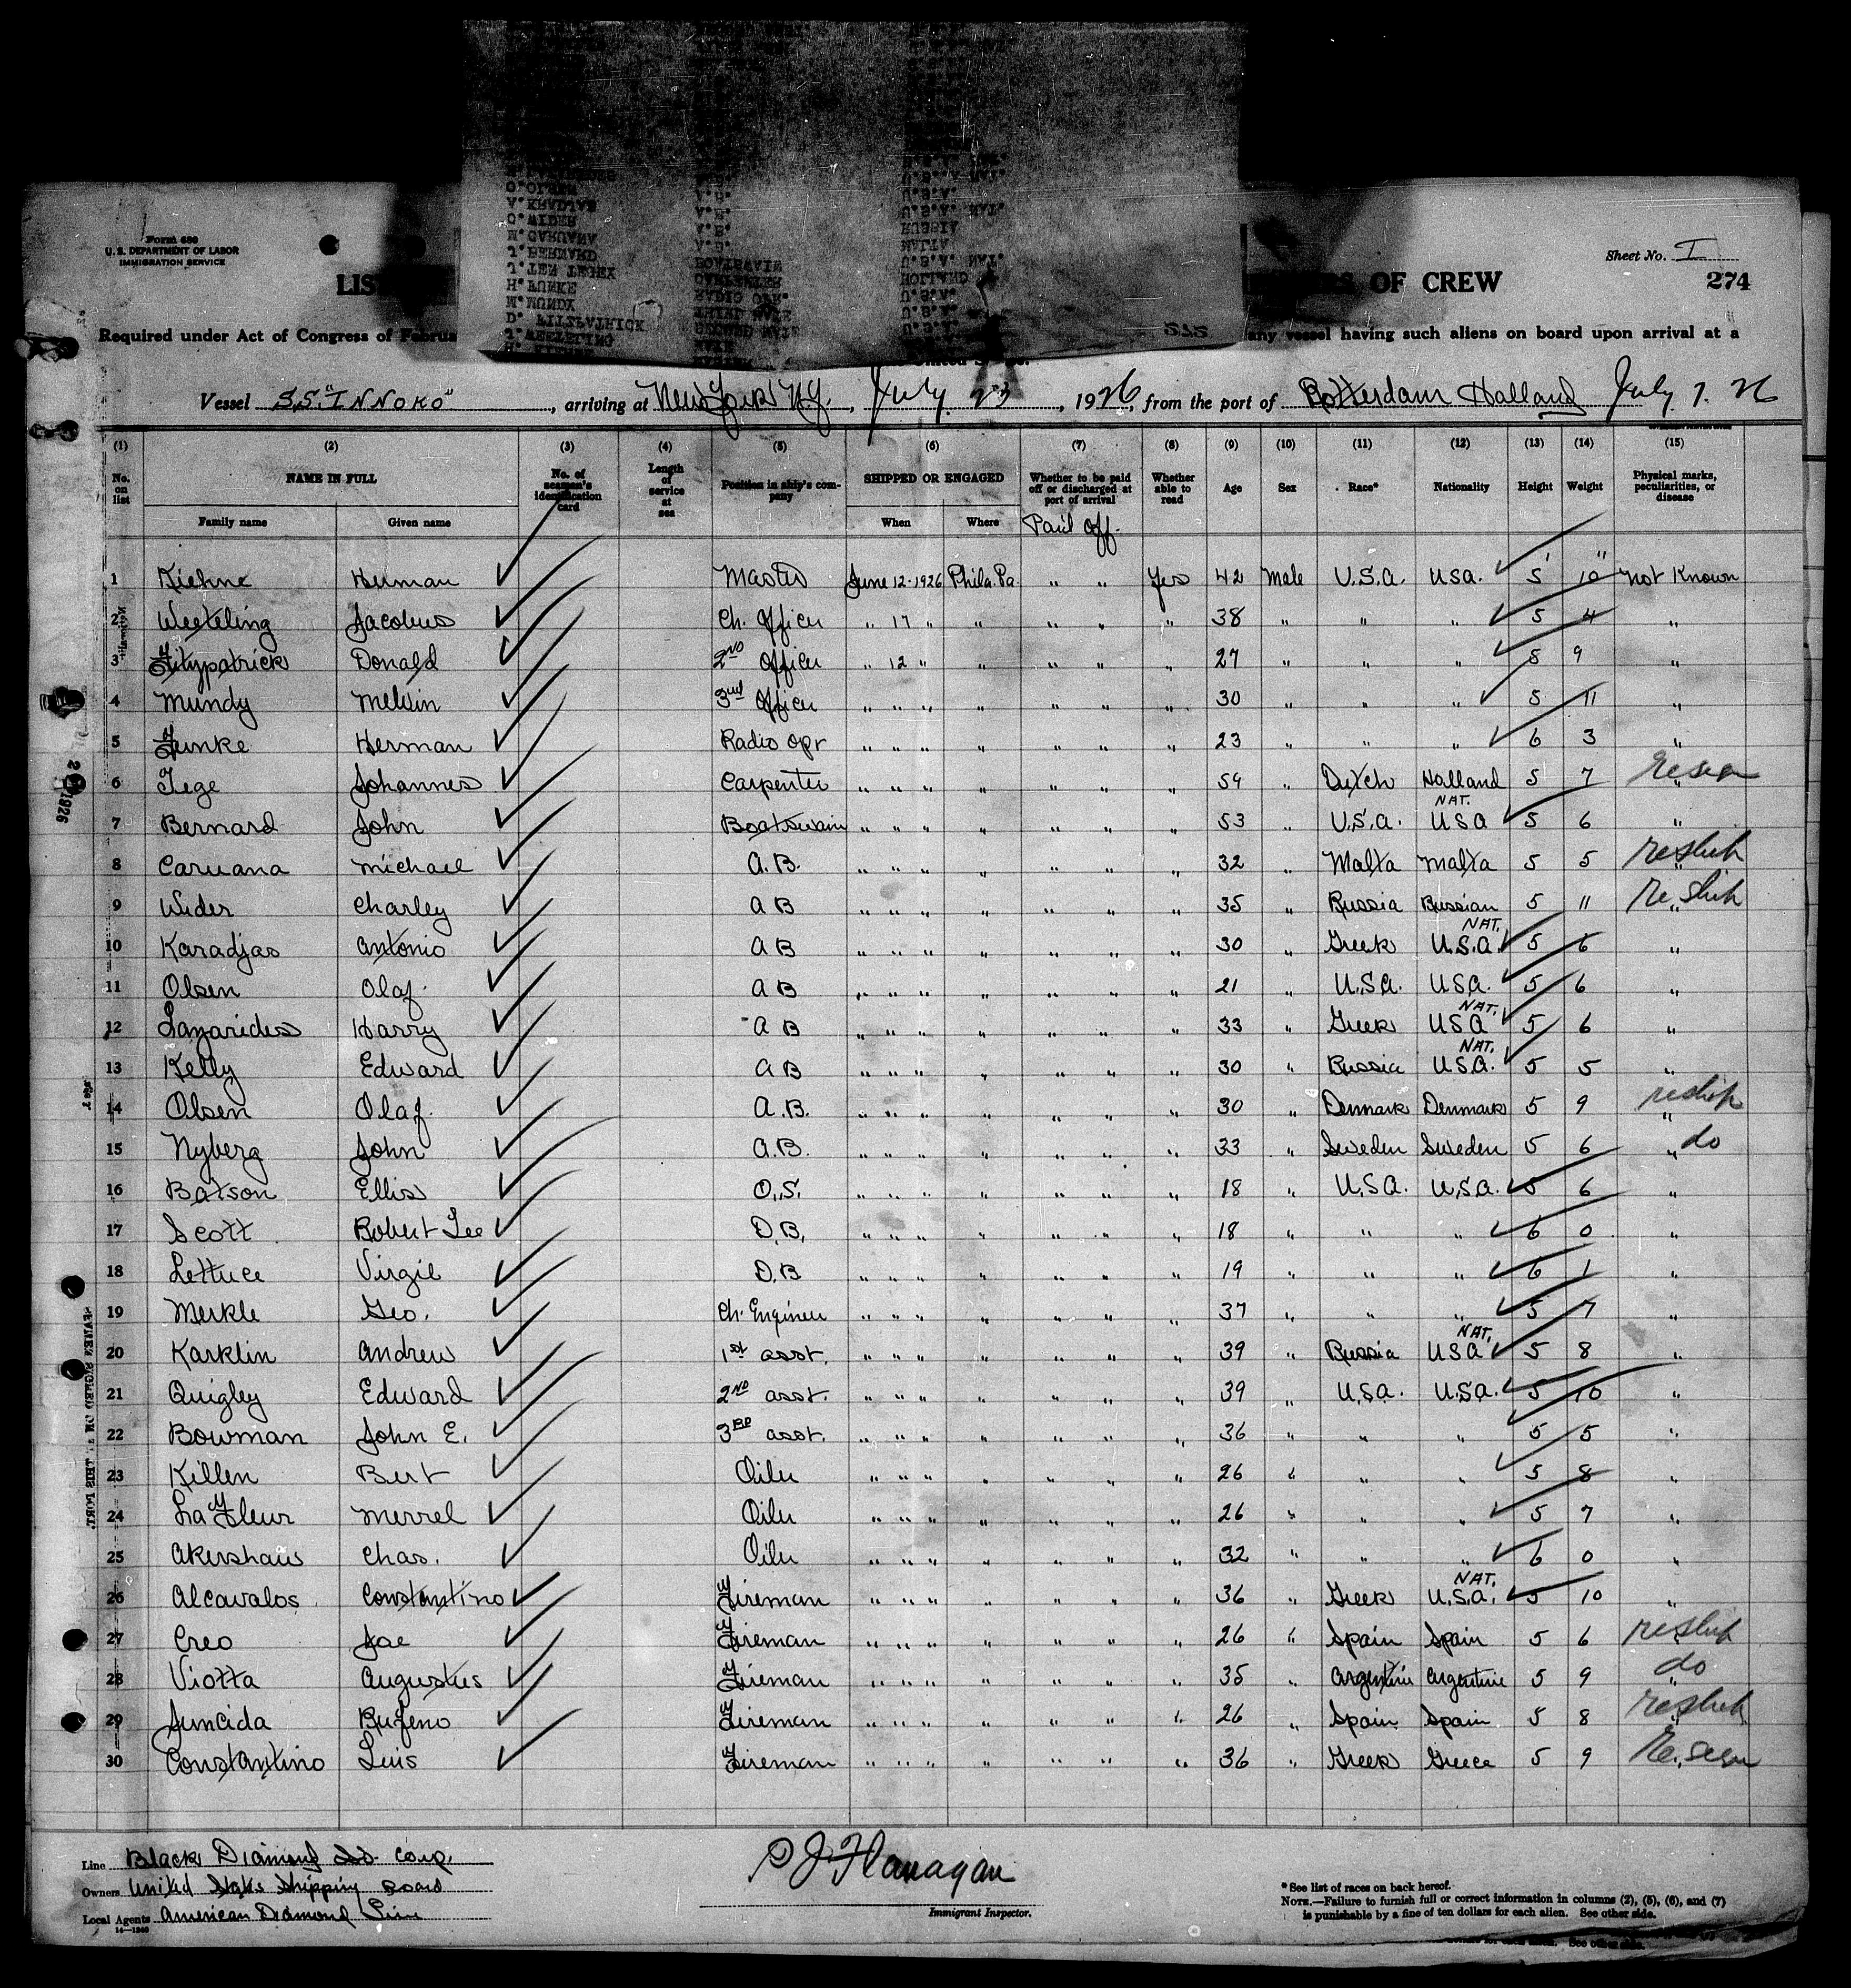 Form 680
U. S. DEPARTMENT OF LABOR
IMMIGRATION SERVICE
Sheet No. I
274
OF CREW
Required under Act of Congress of Februa
any vessel having such aliens on board upon arrival at a
Vessel S.S. "INNOKO", arriving at New York N.Y., July 23, 1926, from the port of Rotterdam Holland July 7. 26
(1) (2) (3) (4) (5) (6) (7) (8) (9) (10) (11) (12) (13) (14) (15)
No. on list NAME IN FULL No. of seaman's identification card Length of service at sea Position in ship's company SHIPPED OR ENGAGED Whether to be paid off or discharged at port of arrival Whether able to read Age Sex Race* Nationality Height Weight Physical marks, peculiarities, or disease
Family name Given name When Where Paid off.
1 Kiehne Herman Master June 12-1926 Phila. Pa. " " Yes 42 Male U.S.A. USA. 5' 10" not Known
2 Weeteling Jacobus Ch. Officer " 17 " " " " " 38 " " " 5 4 "
3 Fitzpatrick Donald 2ND Officer " 12 " " " " " 27 " " " 5 9 "
4 Mundy Melvin 3rd Officer " " " " " " " 30 " " " 5 11 "
5 Funke Herman Radio opr " " " " " " " 23 " " " 6 3 "
6 Tege Johannes Carpenter " " " " " " " 54 " Dutch Holland 5 7 "
7 Bernard John Boatswain " " " " " " " 53 " U.S.A. NAT. USA 5 6 "
8 Caruana Michael A.B. " " " " " " " 32 " Malta Malta 5 5 reship
9 Wider Charley A B " " " " " " " 35 " Russia Russian 5 11 " Reship
10 Karadjas Antonio A B " " " " " " " 30 " Greek NAT. U.S.A. 5 6 "
11 Olsen Olaf. A B " " " " " " " 21 " U.S.A. U.S.A. 5 6 "
12 Lazarides Harry A B " " " " " " " 33 " Greek NAT. USA 5 6 "
13 Kelly Edward A B " " " " " " " 30 " Russia NAT. U.S.A. 5 5 "
14 Olsen Olaf. A.B. " " " " " " " 30 " Denmark Denmark 5 9 " reship
15 Nyberg John A.B. " " " " " " " 33 " Sweden Sweden 5 6 " do
16 Batson Ellis O.S. " " " " " " " 18 " U.S.A. U.S.A. 5 6 "
17 Scott Robert Lee D.B. " " " " " " " 18 " " " 6 0 "
18 Lettuce Virgil D.B " " " " " " " 19 " " " 6 1 "
19 Merkle Geo. Ch. Engineer " " " " " " " 37 " " " 5 7 "
20 Karklin Andrew 1st asst. " " " " " " " 39 " Russia NAT. USA 5 8 "
21 Quigley Edward 2ND asst. " " " " " " " 39 " U.S.A. U.S.A. 5 10 "
22 Bowman John E. 3RD asst. " " " " " " " 36 " " " 5 5 "
23 Killen Bert Oiler " " " " " " " 26 " " " 5 8 "
24 La Fleur Merrel Oiler " " " " " " " 26 " " " 5 7 "
25 Akershaus Chas. Oiler " " " " " " " 32 " " " 6 0 "
26 Alcavalos Constantino Fireman " " " " " " " 36 " Greek NAT. U.S.A. 5 10 "
27 Creo Joe Fireman " " " " " " " 26 " Spain Spain 5 6 reship
28 Viotta Augustus Fireman " " " " " " " 35 " Argentine Argentine 5 9 " do
29 Juncida Rufeno Fireman " " " " " " " 26 " Spain Spain 5 8 reship
30 Constantino Luis Fireman " " " " " " " 36 " Greek Greece 5 9
Line Black Diamond SS. Corp.
Owners United States Shipping Board
Local Agents American Diamond Line
14—1940
P J Flanagan
Immigrant Inspector.
* See list of races on back hereof.
NOTE.—Failure to furnish full or correct information in columns (2), (5), (6), and (7)
is punishable by a fine of ten dollars for each alien. See other side.
O. OLSEN A.B. U.S.A.
A. KRADJAS A.B. U.S.A. NAT.
O. WIDER A.B. RUSSIA
M. CARUANA A.B. MALTA
J. BERNARD BOATSWAIN U.S.A. NAT.
J. TEN TEGEX CARPENTER HOLLAND
H. FUNKE RADIO OPR. U.S.A.
M. MUNDY THIRD MATE U.S.A.
D. FITZPATRICK SECOND MATE U.S.A.